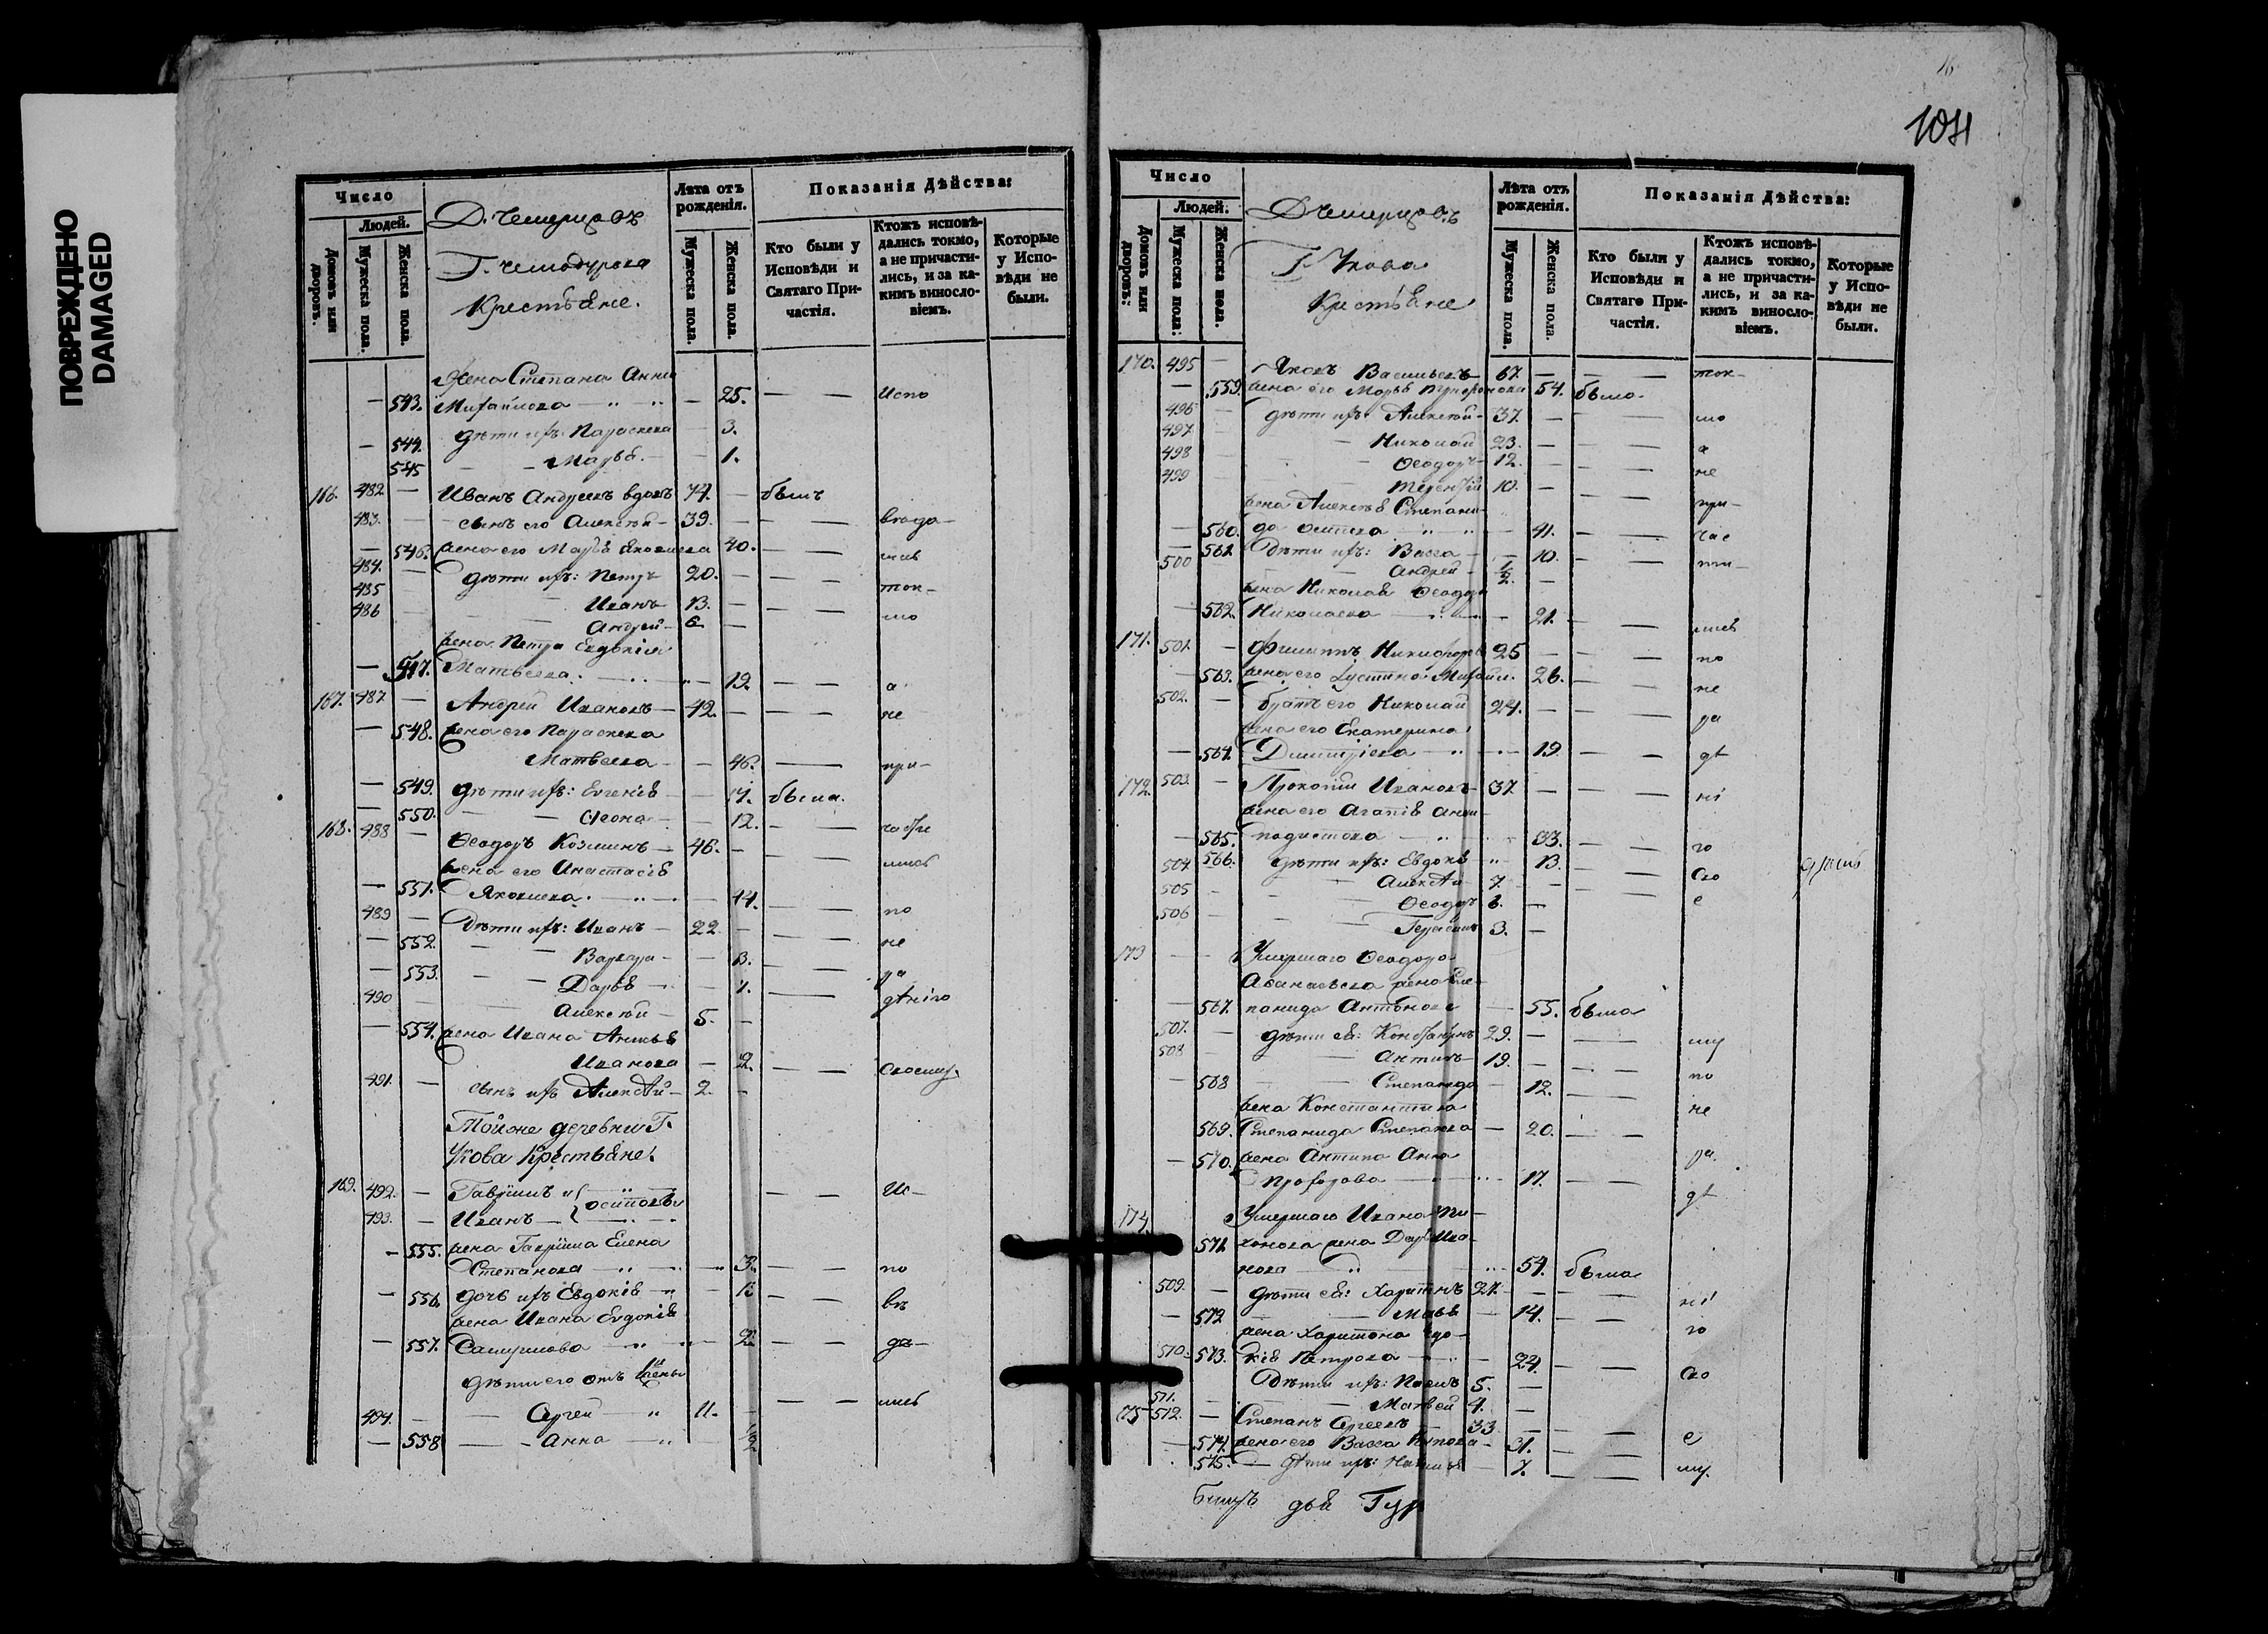 ПОВРЕЖДЕНО
DAMAGED
Число
Людей.
Домовъ или дворовъ.
Мужеска пола.
Женска пола.
Г. Чемодурова
Крестьяне.
Лѣта отъ рожденія.
Мужеска пола.
Женска пола.
Показанія Дѣйства:
Кто были у Исповѣди и Святаго Причастія.
Ктожъ исповѣдались токмо, а не причастились, и за какимъ винословіемъ.
Которые у Исповѣди не были.
Жена Степана Анна
543. Михайлова 25. Испо
544. дѣти ихъ: Параскева 3.
545 Марья 1.
166. 482 Иванъ Андреевъ вдовъ 74. былъ
483. сынъ его Алексѣй 39.
546. жена его Марья Яковлева 40.
484. дѣти ихъ: Петръ 20. ток-
485 Иванъ 13. мо
486 Андрей 6
жена Петра Евдокія
547. Матвеева 19. а
167. 487 Андрей Ивановъ 42. не
548. жена его Параскева
Матвеева 46. при-
549. дѣти ихъ: Евгенія 17. была.
550. 12.
168. 488 Ѳеодоръ Козминъ 46.
жена его Анастасія
551. Яковлева 44. по
489 Дѣти ихъ: Иванъ 22. не
552. Варвара 13. ра
553. Дарья 7. дѣнiю
490 Алексѣй 5.
554. жена Ивана
Иванова 2. своему.
491. сынъ ихъ Алексѣй 2.
Тойже деревни Г.
Укова Крестьяне.
169. 492. Гаврiилъ и
493. Иванъ Осиповы Ис-
555. жена Гаврiила Елена
Степанова по
556. дочь ихъ Евдокія вѣ
жена Ивана Евдокія
557. Самуилова да-
дѣти его отъ 1й жены лись
494. Сергей 11.
558 Анна
104
Число
Людей.
Домовъ или дворовъ:
Мужеска пола:
Женска пола.
Г. Укова
Крестьяне
Лѣта отъ рожденія.
Мужеска пола.
Женска пола.
Показанія Дѣйства:
Кто были у Исповѣди и Святаго Причастія.
Ктожъ исповѣдались токмо, а не причастились, и за какимъ винословіемъ.
Которые у Исповѣди не были.
170. 495 Яковъ Васильевъ 67. ток-
559. жена его Марья 54. была.
496 дѣти ихъ: Алексѣй 37. мо
497 Николай 23. а
498 Ѳеодоръ 12. не
499 Терентій 10.
жена Алексѣя Степани- при-
560. да Осипова 41. час
561. Дѣти ихъ: Васса 10. ти-
500 Андрей 1/2
жена Николая Ѳеодора
562. Николаева 21. лись
171. 501. Филиппъ Никифоровъ 25 по
563. жена его Устина Михайл. 26. не
502. братъ его Николай 24. ра
жена его Екатерина
564. Димитріева 19. дѣ
172. 503. Прокопій Ивановъ 37 ні
жена его Агапія Анти-
565. 33. го
566. дѣти ихъ: Евдокія 13. сво
504 Алексѣй 7. е
505 Ѳеодоръ 6.
506 Герасимъ 3.
173 Умершаго Ѳеодора
Аѳанасьева жена Сте-
567. панида Антонова 55. была
507. дѣти ея: Констанинъ 29. му
508 Антипъ 19. по
568 Степанида 12.
жена Константина не
569. Степанида Степанова 20.
570. жена Антипа Анна ра
Прохорова 17. дѣ
174. Умершаго Ивана Ти-
571. хонова жена Дарья Ива-
нова 54. была
509. дѣти ея: Харитонъ 27. ні
572 Мавра 14. го
жена Харитона Евдо-
573. кія Петрова 24. сво
510. Дѣти ихъ: Павелъ 5.
511. Матвей 4.
175 512. Степанъ Сергеевъ 33 е
574. жена его Васса 31.
575. дѣти ихъ: Наталья 7. му.